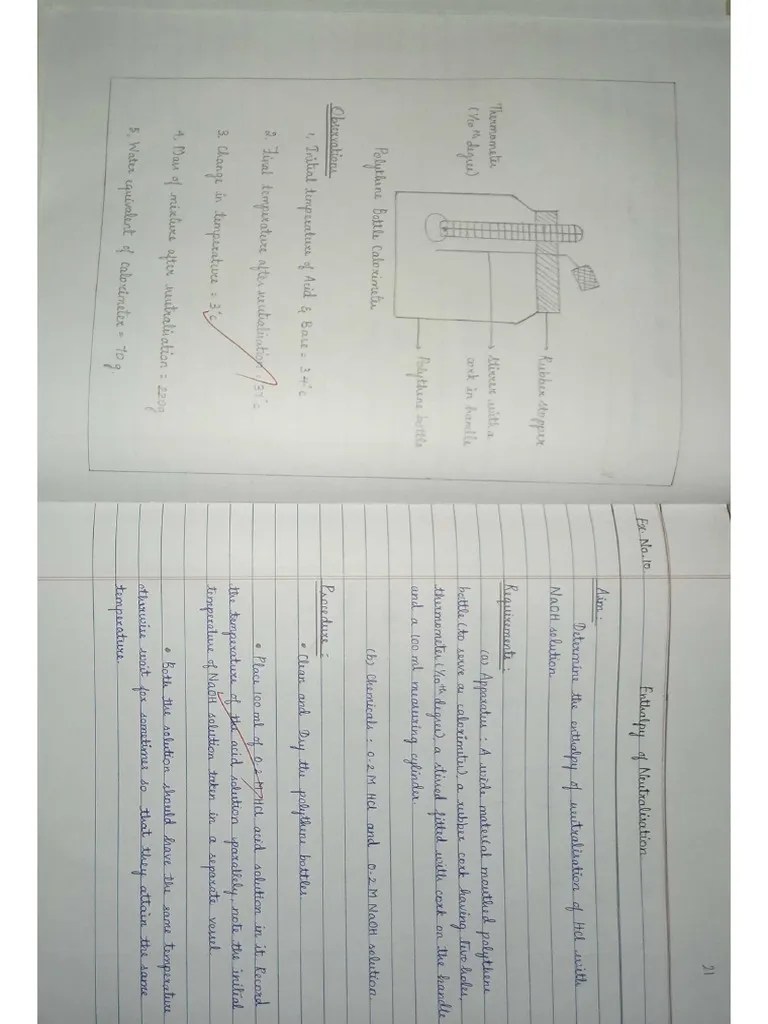 Thermometer
(1/10th degree)
Rubber stopper
Stirrer with a
cork in handle
Polythene bottle
Polythene Bottle Calorimeter
Observations
1. Initial temperature of Acid & Base = 34°C
2. Final temperature after neutralisation = 37°C
3. Change in temperature = 3°C
4. Mass of mixture after neutralisation = 220g
5. Water equivalent of calorimeter = 70g.
21
Ex No.10
Enthalpy of Neutralisation
Aim:
Determine the enthalpy of neutralisation of Hcl with
NaOH solution
Requirements:
(a) Apparatus : A wide material mouthed polythene
bottle (to serve as calorimite), a rubber cork having two holes,
thermometer (1/10th degree), a stirred fitted with cork on the handle
and a 100 ml measuring cylinder.
(b) Chemicals : 0.2M Hcl and 0.2M NaOH solution.
Procedure :
• Clean and Dry the polythene bottles
• Place 100 ml of 0.2 M Hcl acid solution in it. Record
the temperature of the acid solution parallely, note the initial
temperature of NaOH solution taken in a separate vessel
• Both the solution should have the same temperature
otherwise wait for sometimes so that they attain the same
temperature.